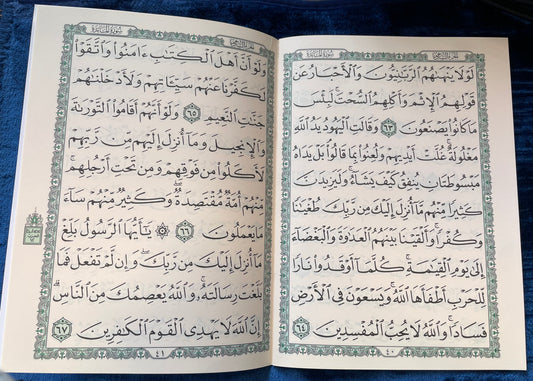 الجزء السادس سورة المائدة
لَوْلَا يَنْهَىٰهُمُ ٱلرَّبَّٰنِيُّونَ وَٱلْأَحْبَارُ عَن
قَوْلِهِمُ ٱلْإِثْمَ وَأَكْلِهِمُ ٱلسُّحْتَۚ لَبِئْسَ
مَا كَانُوا۟ يَصْنَعُونَ ٦٣ وَقَالَتِ ٱلْيَهُودُ يَدُ ٱللَّهِ
مَغْلُولَةٌۚ غُلَّتْ أَيْدِيهِمْ وَلُعِنُوا۟ بِمَا قَالُوا۟ۘ بَلْ يَدَاهُ
مَبْسُوطَتَانِ يُنفِقُ كَيْفَ يَشَآءُۚ وَلَيَزِيدَنَّ
كَثِيرًا مِّنْهُم مَّآ أُنزِلَ إِلَيْكَ مِن رَّبِّكَ طُغْيَٰنًا
وَكُفْرًاۚ وَأَلْقَيْنَا بَيْنَهُمُ ٱلْعَدَٰوَةَ وَٱلْبَغْضَآءَ
إِلَىٰ يَوْمِ ٱلْقِيَٰمَةِۚ كُلَّمَآ أَوْقَدُوا۟ نَارًا
لِّلْحَرْبِ أَطْفَأَهَا ٱللَّهُۚ وَيَسْعَوْنَ فِى ٱلْأَرْضِ
فَسَادًاۚ وَٱللَّهُ لَا يُحِبُّ ٱلْمُفْسِدِينَ ٦٤
٤٠
الجزء السادس سورة المائدة
وَلَوْ أَنَّ أَهْلَ ٱلْكِتَٰبِ ءَامَنُوا۟ وَٱتَّقَوْا۟
لَكَفَّرْنَا عَنْهُمْ سَيِّـَٔاتِهِمْ وَلَأَدْخَلْنَٰهُمْ
جَنَّٰتِ ٱلنَّعِيمِ ٦٥ وَلَوْ أَنَّهُمْ أَقَامُوا۟ ٱلتَّوْرَىٰةَ
وَٱلْإِنجِيلَ وَمَآ أُنزِلَ إِلَيْهِم مِّن رَّبِّهِمْ
لَأَكَلُوا۟ مِن فَوْقِهِمْ وَمِن تَحْتِ أَرْجُلِهِمۚ
مِّنْهُمْ أُمَّةٌ مُّقْتَصِدَةٌۖ وَكَثِيرٌ مِّنْهُمْ سَآءَ
مَا يَعْمَلُونَ ٦٦ ۞ يَٰٓأَيُّهَا ٱلرَّسُولُ بَلِّغْ
مَآ أُنزِلَ إِلَيْكَ مِن رَّبِّكَۖ وَإِن لَّمْ تَفْعَلْ فَمَا
بَلَّغْتَ رِسَالَتَهُۥۚ وَٱللَّهُ يَعْصِمُكَ مِنَ ٱلنَّاسِۗ
إِنَّ ٱللَّهَ لَا يَهْدِى ٱلْقَوْمَ ٱلْكَٰفِرِينَ ٦٧
٤١